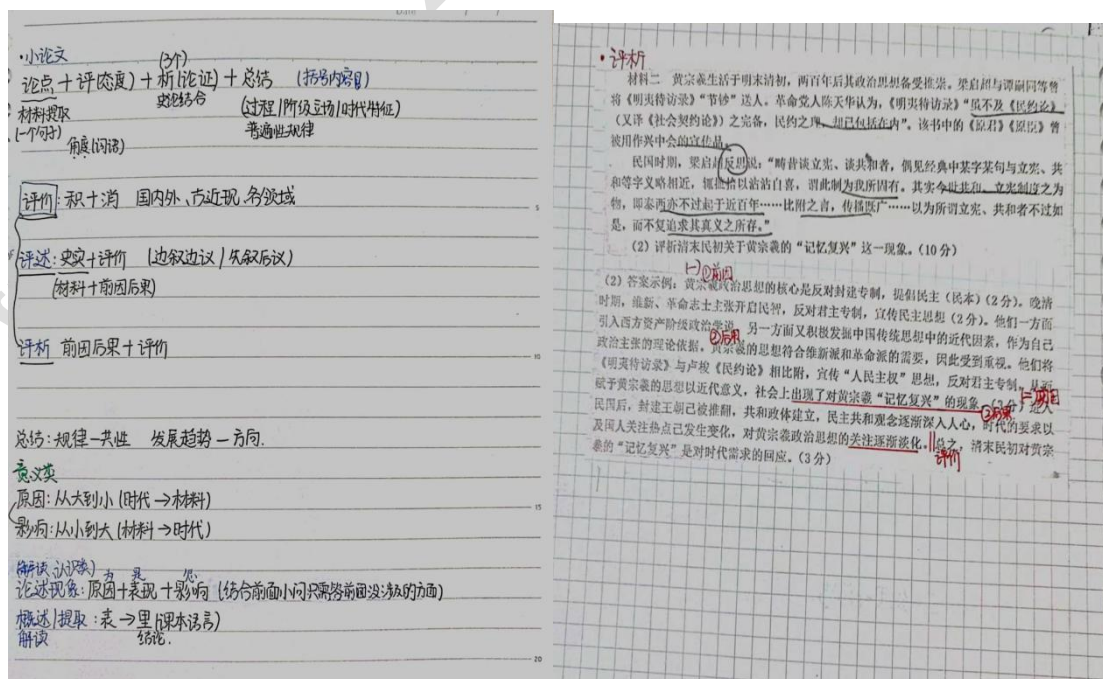 ·小论文
(3个)
论点+评(态度)+析(论证)+总结 (括号内容自)
史论结合
材料提取 (过程/阶级立场/时代特征)
(一个句子) 普遍性规律
角度(词语)
评价:积+消 国内外、古近现、各领域
评述:史实+评价 (边叙边议/先叙后议)
(材料+前因后果)
评析 前因后果+评价
总结:规律-共性 发展趋势-方向.
意义类
原因:从大到小(时代→材料)
影响:从小到大(材料→时代)
(解读、认识类) 为 是 怎
论述现象:原因+表现+影响 (结合前面小问只需答前面没涉及的方面)
概述/提取:表→里(课本语言)
解读 结论.
·评析
材料二 黄宗羲生活于明末清初,两百年后其政治思想备受推崇。梁启超与谭嗣同等曾
将《明夷待访录》“节钞”送人。革命党人陈天华认为,《明夷待访录》“虽不及《民约论》
(又译《社会契约论》)之完备,民约之理,却已包括在内”。该书中的《原君》《原臣》曾
被用作兴中会的宣传品。
民国时期,梁启超反思说:“畴昔谈立宪、谈共和者,偶见经典中某字某句与立宪、共
和等字义略相近,辄摭拾以沾沾自喜,谓此制为我所固有。其实今世共和、立宪制度之为
物,即泰西亦不过起于近百年……比附之言,传播既广……以为所谓立宪、共和者不过如
是,而不复追求其真义之所存。”
(2)评析清末民初关于黄宗羲的“记忆复兴”这一现象。(10分)
(一)①前因
(2)答案示例:黄宗羲政治思想的核心是反对封建专制,提倡民主(民本)(2分)。晚清
时期,维新、革命志士主张开启民智,反对君主专制,宣传民主思想(2分)。他们一方面
引入西方资产阶级政治学说,另一方面又积极发掘中国传统思想中的近代因素,作为自己
②后果
政治主张的理论依据。黄宗羲的思想符合维新派和革命派的需要,因此受到重视。他们将
《明夷待访录》与卢梭《民约论》相比附,宣传“人民主权”思想,反对君主专制,从而
赋予黄宗羲的思想以近代意义,社会上出现了对黄宗羲“记忆复兴”的现象。(3分)进入
①前因
②后果
民国后,封建王朝已被推翻,共和政体建立,民主共和观念逐渐深入人心,时代的要求以
及国人关注热点已发生变化,对黄宗羲政治思想的关注逐渐淡化。总之,清末民初对黄宗
评价
羲的“记忆复兴”是对时代需求的回应。(3分)